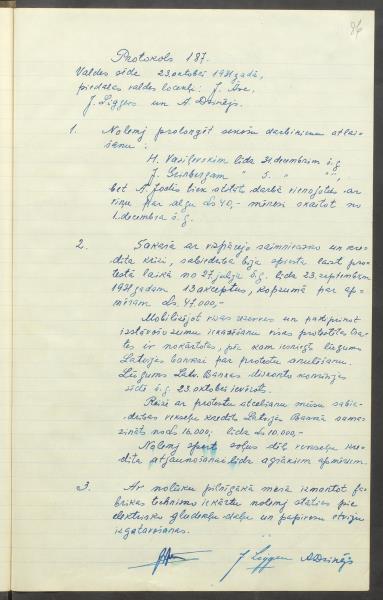 86
Protokols 187.
Valdes sēde 23. oktobrī 1931 gadā,
piedalās valdes locekļi: J.
J. Liggers un A. Dzinējs.
1. Nolemj prolongēt senošo darbinieku atlai-
šanu:
H. Vasiļevskim līdz 31 decembrim š.g.
J. Grinbergam " 5. " " ",
bet A. Jodis tiek atstāts darbā vienojoties ar
viņu par algu Ls 40,- mēnesī skaitot no
1. decembra š.g.
2. Sakarā ar vispārējo saimniecisko un kre-
dita krizi, sabiedrība bija spiesta laist pro-
testā laikā no 27. jūlija š.g. līdz 23. septembrim
1931 gadam 13 akceptus, kopsumā par ap-
mēram Ls. 47.000,-
Mobilizējot visas rezerves un pastiprinot
izstāvošo sumu ikasēšanu visas protestētās tra-
tes ir nokārtotas, pēc kam iesniegts lūgums
Latvijas bankai par protestu anulēšanu.
Lūgums Latv. Bankas diskonto komisijas
sēdē š.g. 23. oktobrī ievērots.
Reizē ar protestu atcelšanu mūsu sabie-
drības vekseļu kredits Latvijas Bankā sama-
zināts no Ls 16.000,- līdz Ls 10.000,-
Nolemj spert soļus dēļ vekseļu kre-
dita atjaunošanas līdz agrākiem apmēriem.
3. Ar nolūku pilnīgākā mērā izmantot fa-
brikas technisko iekārtu nolemj stāties pie
elektrisko gludekļu daļu un papirosu etviju
izgatavošanas.
J. Liggers A Dzinējs